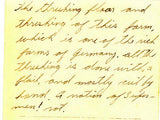 The Thrashing floor and
Thrashing of This farm,
which is one of the rich
farms of Germany, all the
Thrashing is done with a
flail, and mostly cut by
hand. A nation of super-
men! not.